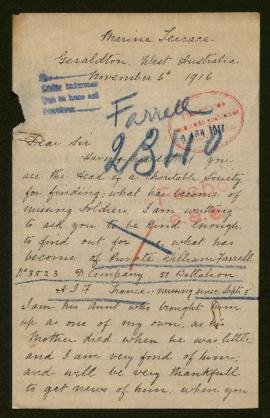 Marine Terrace
Geraldton, West Australia
November 6th 1916
Farrell
2340
Dear Sir
Having heard you
are the Head of a Charitable Society
for finding what has become of
missing Soldiers, I am writing
to ask you to be kind enough
to find out for me what has
become of Private William Farrell
No 3523 D Company 51 Battalion
A.I.F France, missing since Sept 3
I am his aunt who brought him
up as one of my own, as his
Mother died when he was little
and I am very fond of him
and will be very thankfull
to get news of him, when you